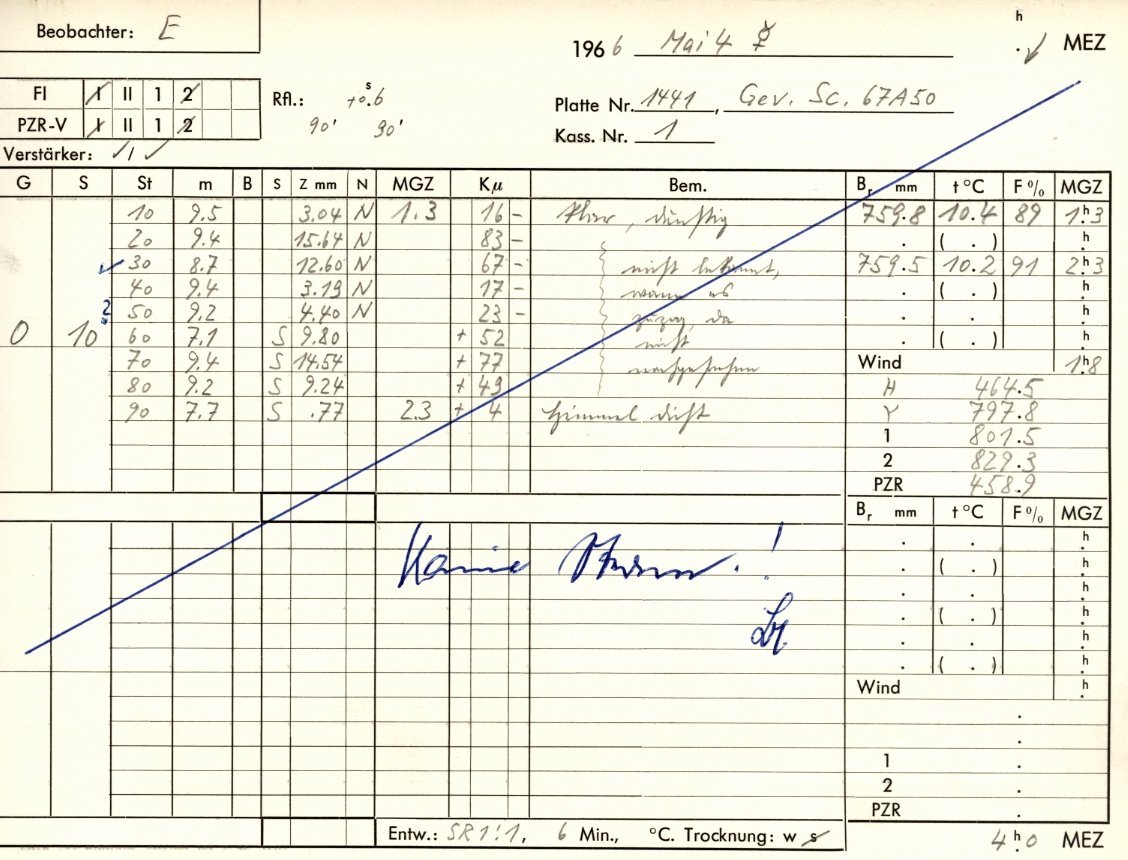 Beobachter: E
1966 Mai 4 ☿
h . MEZ
FI I II 1 2
PZR-V I II 1 2
Rfl.: +0.s6
90' 90'
Platte Nr. 1441, Gev. Sc. 67A50
Kass. Nr. 1
Verstärker: ✓/✓
G S St m B S Z mm N MGZ Kµ Bem. Br mm t °C F % MGZ
10 9.5 3.04 N 1.3 16 - klar, dunstig 759.8 10.4 89 1h.3
20 9.4 15.64 N 83 - . ( . ) h.
✓ 30 8.7 12.60 N 67 - nicht bekannt, 759.5 10.2 91 2h.3
40 9.4 3.19 N 17 - wann es . ( . ) h.
50 9.2 4.40 N 23 - zuzog, da . . h.
0 10 2 60 7.1 S 9.80 + 52 nicht . ( . ) h.
70 9.4 S 14.54 + 77 nachgesehen Wind 1h.8
80 9.2 S 9.24 + 49 H 464.5
90 7.7 S .77 2.3 + 4 Himmel dicht Y 797.8
1 801.5
2 829.3
PZR 458.9
Br mm t °C F % MGZ
. . h.
Keine Sterne! . ( . ) h.
. . h.
. ( . ) h.
. . h.
. ( . ) h.
Wind h.
.
.
1 .
2 .
PZR .
Entw.: SR 1:1, 6 Min., °C. Trocknung: w s
4h.0 MEZ